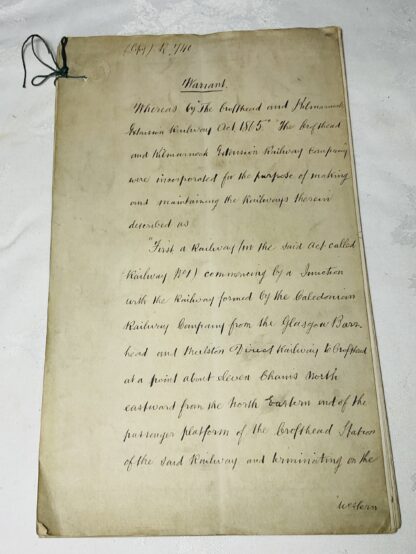 Warrant.
Whereas by "The Crofthead and Kilmarnock
Extension Railway Act 1865" "The Crofthead
and Kilmarnock Extension Railway Company
were incorporated for the purpose of making
and maintaining the Railways therein
described as
"First a Railway (in the said Act called
Railway No 1) commencing by a Junction
with the Railway formed by the Caledonian
Railway Company from the Glasgow Barr-
head and Neilston Direct Railway to Crofthead
at a point about eleven Chains North
eastward from the North Eastern end of the
passenger platform of the Crofthead Station
of the said Railway and terminating on the
western